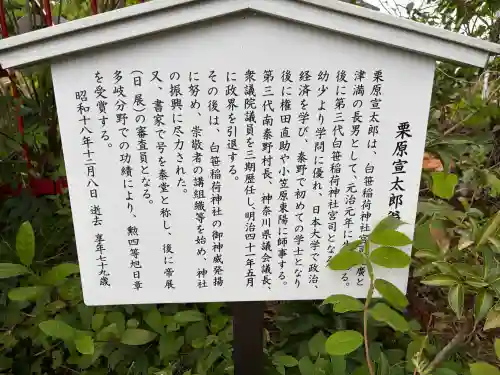 栗原宣太郎
栗原宣太郎は、白笹稲荷神社
津満の長男として、元治元年に生
後に第三代白笹稲荷神社宮司となる。
幼少より学問に優れ、日本大学で政治、
経済を学び、秦野で初めての学士となり
後に権田直助や小笠原東陽に師事する。
第三代南秦野村長、神奈川県議会議長、
衆議院議員を三期歴任し、明治四十一年五月
に政界を引退する。
その後は、白笹稲荷神社の御神威発揚
に努め、崇敬者の講組織等を始め、神社
の振興に尽力された。
又、書家で号を秦堂と称し、後に帝展
(日展)の審査員となる。
多岐分野での功績により、勲四等旭日章
を受賞する。
昭和十八年十二月八日 逝去 享年七十九歳